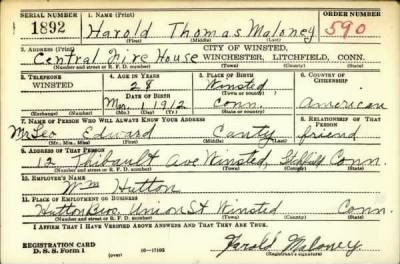 SERIAL NUMBER 1. NAME (Print) ORDER NUMBER
1892 Harold Thomas Maloney 590
(First) (Middle) (Last)
2. ADDRESS (Print) CITY OF WINSTED,
Central Fire House WINCHESTER, LITCHFIELD, CONN.
(Number and street or R. F. D. number) (Town) (County) (State)
3. TELEPHONE 4. AGE IN YEARS 5. PLACE OF BIRTH 6. COUNTRY OF CITIZENSHIP
WINSTED 28 Winsted
DATE OF BIRTH (Town or county)
Mar. 1 1912 Conn. American
(Exchange) (Number) (Mo.) (Day) (Yr.) (State or country)
7. NAME OF PERSON WHO WILL ALWAYS KNOW YOUR ADDRESS 8. RELATIONSHIP OF THAT PERSON
Mr Leo Edward Canty friend
(Mr., Mrs., Miss) (First) (Middle) (Last)
9. ADDRESS OF THAT PERSON
12 Thibault Ave Winsted, Conn.
(Number and street or R. F. D. number) (Town) (County) (State)
10. EMPLOYER'S NAME
Wm Hutton
11. PLACE OF EMPLOYMENT OR BUSINESS
Hutton Bros. Union St Winsted Conn.
(Number and street or R. F. D. number) (Town) (County) (State)
I AFFIRM THAT I HAVE VERIFIED ABOVE ANSWERS AND THAT THEY ARE TRUE.
REGISTRATION CARD
D. S. S. Form 1 (over) 16—17105 Harold Maloney
(Registrant's signature)